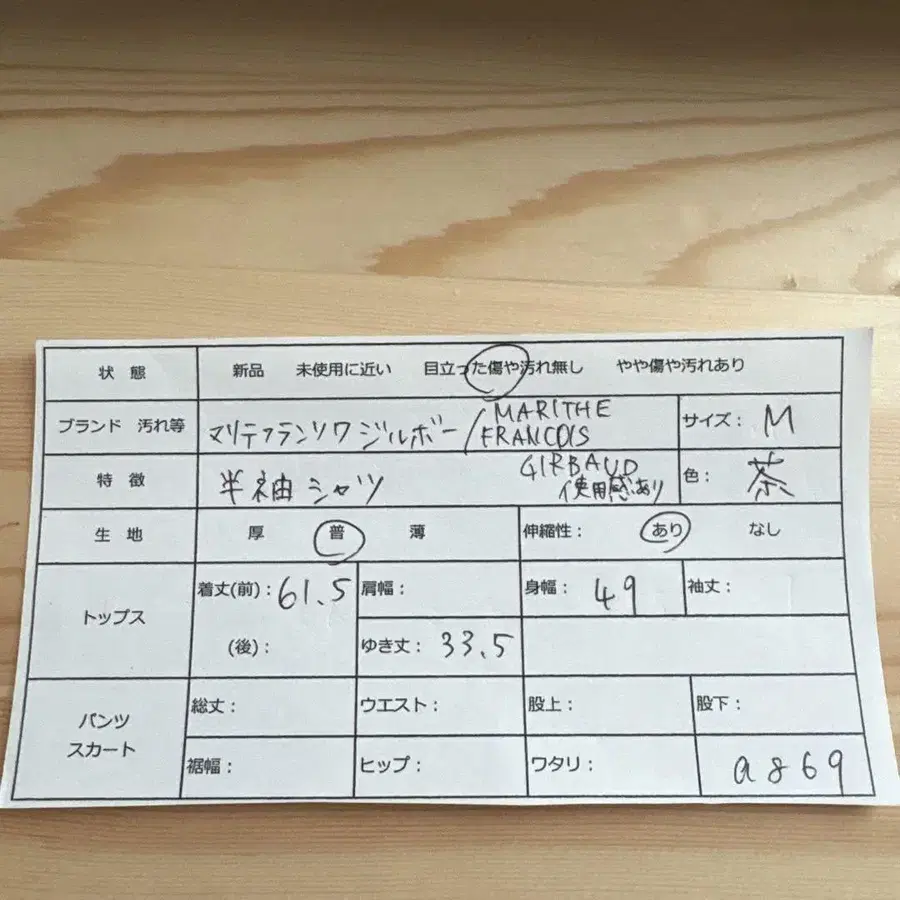 状 態 新品 未使用に近い 目立った傷や汚れ無し やや傷や汚れあり
ブランド 汚れ等 マリテフランソワ ジルボー/ MARITHE
FRANCOIS
GIRBAUD サイズ: M
特 徴 半袖シャツ 使用感あり 色: 茶
生 地 厚 普 薄 伸縮性: あり なし
トップス 着丈(前): 61.5 肩幅: 身幅: 49 袖丈:
(後): ゆき丈: 33.5
パンツ
スカート
総丈: ウエスト: 股上: 股下:
裾幅: ヒップ: ワタリ: a869